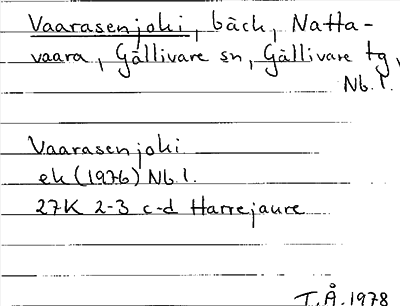 Vaarasenjoki, bäck, Natta-
vaara, Gällivare sn, Gällivare tg,
Nb.l.
Vaarasenjoki
ek (1976) Nb.l.
27K 2-3 c-d Harrejaure
T.Å.1978